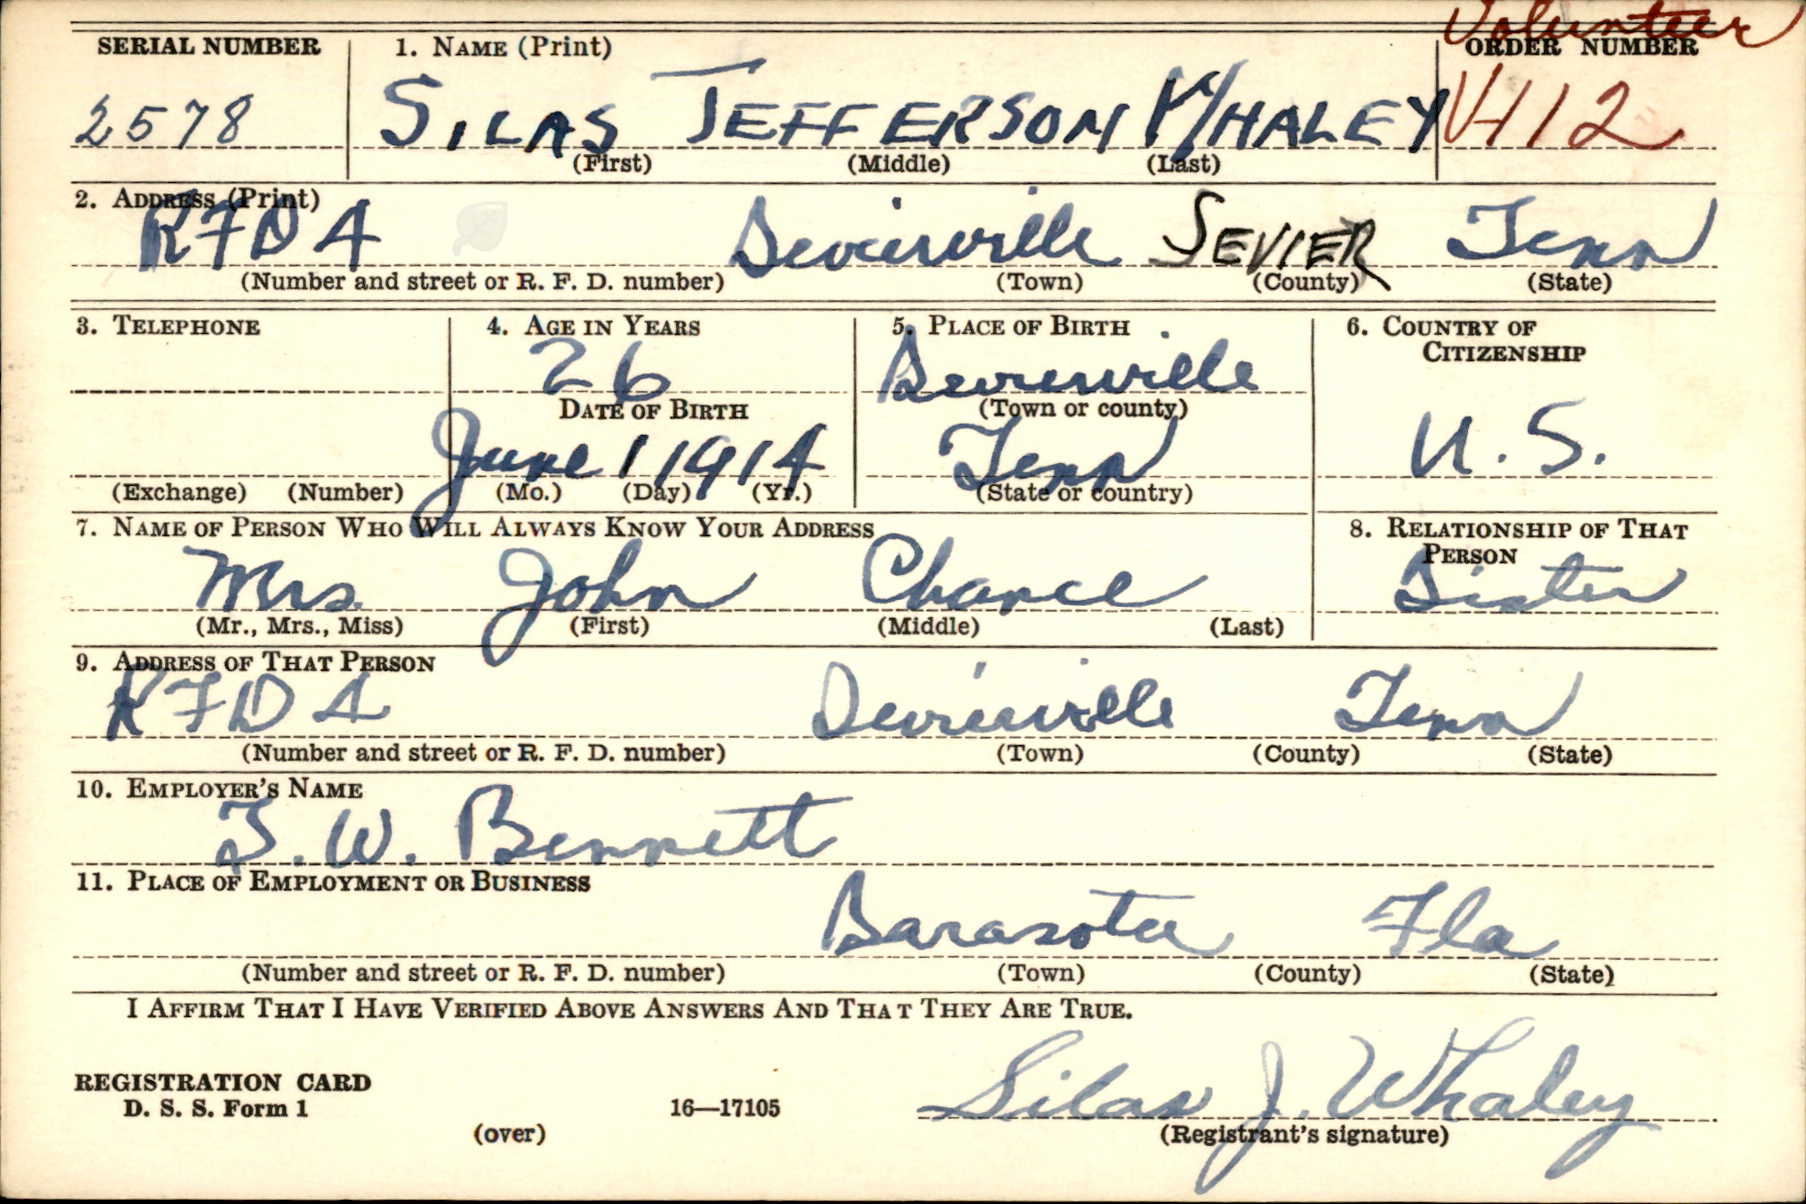 Volunteer
SERIAL NUMBER 1. NAME (Print) ORDER NUMBER
2578 SILAS JEFFERSON WHALEY V412
(First) (Middle) (Last)
2. ADDRESS (Print)
RFD 4 Sevierville SEVIER Tenn
(Number and street or R. F. D. number) (Town) (County) (State)
3. TELEPHONE 4. AGE IN YEARS 5. PLACE OF BIRTH 6. COUNTRY OF CITIZENSHIP
26 Sevierville
DATE OF BIRTH (Town or county)
June 1 1914 Tenn U. S.
(Exchange) (Number) (Mo.) (Day) (Yr.) (State or country)
7. NAME OF PERSON WHO WILL ALWAYS KNOW YOUR ADDRESS 8. RELATIONSHIP OF THAT PERSON
Mrs. John Chance Sister
(Mr., Mrs., Miss) (First) (Middle) (Last)
9. ADDRESS OF THAT PERSON
RFD 4 Sevierville Tenn
(Number and street or R. F. D. number) (Town) (County) (State)
10. EMPLOYER'S NAME
T. W. Bennett
11. PLACE OF EMPLOYMENT OR BUSINESS
Sarasota Fla
(Number and street or R. F. D. number) (Town) (County) (State)
I AFFIRM THAT I HAVE VERIFIED ABOVE ANSWERS AND THAT THEY ARE TRUE.
REGISTRATION CARD
D. S. S. Form 1 16—17105 Silas J. Whaley
(over) (Registrant's signature)